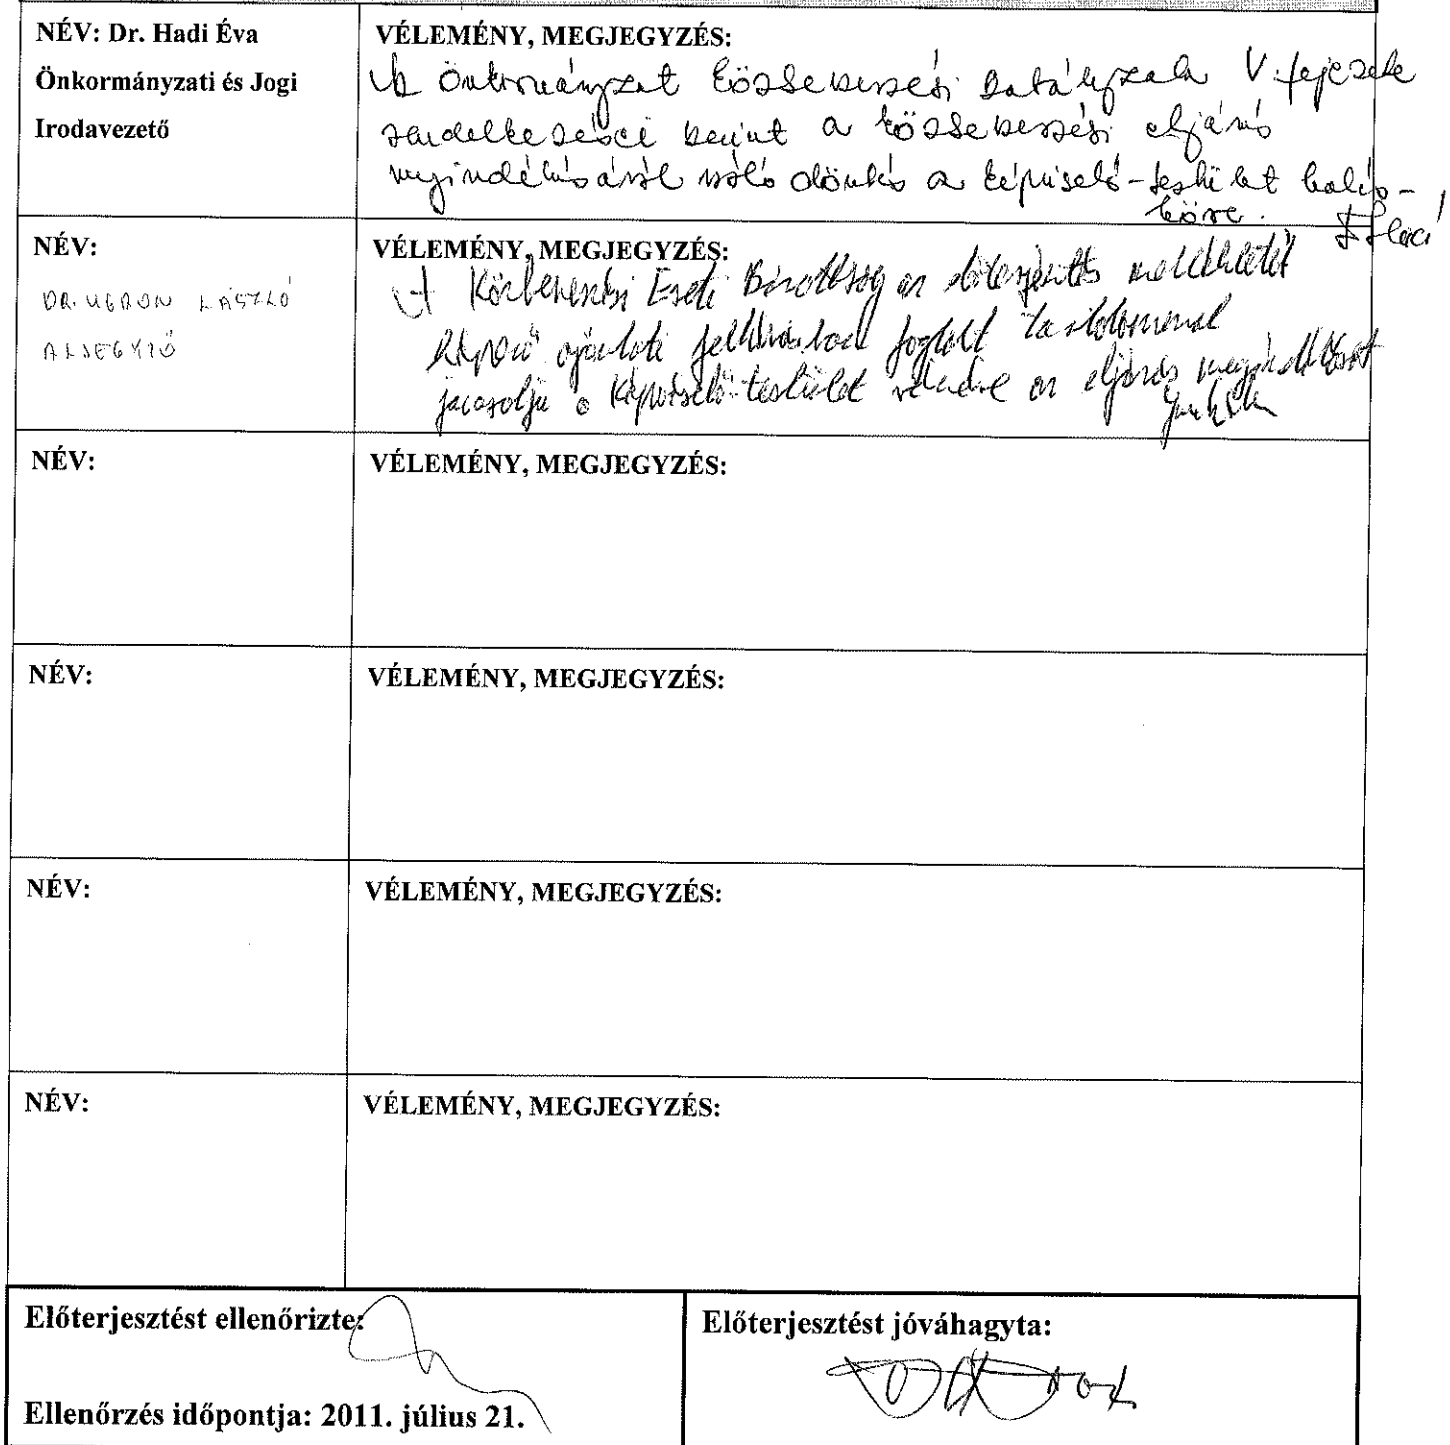 NÉV: Dr. Hadi Éva
Önkormányzati és Jogi
Irodavezető
VÉLEMÉNY, MEGJEGYZÉS:
Az Önkormányzat közbeszerzési szabályzata V. fejezete
rendelkezései szerint a közbeszerzési eljárás
megindításáról szóló döntés a képviselő-testület hatás-
köre.
NÉV:
DR. UGRON LÁSZLÓ
ALJEGYZŐ
VÉLEMÉNY, MEGJEGYZÉS:
A Közbeszerzési Eseti Bizottság az előterjesztés mellékletét
képező ajánlati felhívásban foglalt tartalommal
javasolja a Képviselő-testület részére az eljárás megindítását
NÉV:
VÉLEMÉNY, MEGJEGYZÉS:
NÉV:
VÉLEMÉNY, MEGJEGYZÉS:
NÉV:
VÉLEMÉNY, MEGJEGYZÉS:
NÉV:
VÉLEMÉNY, MEGJEGYZÉS:
Előterjesztést ellenőrizte:
Ellenőrzés időpontja: 2011. július 21.
Előterjesztést jóváhagyta: